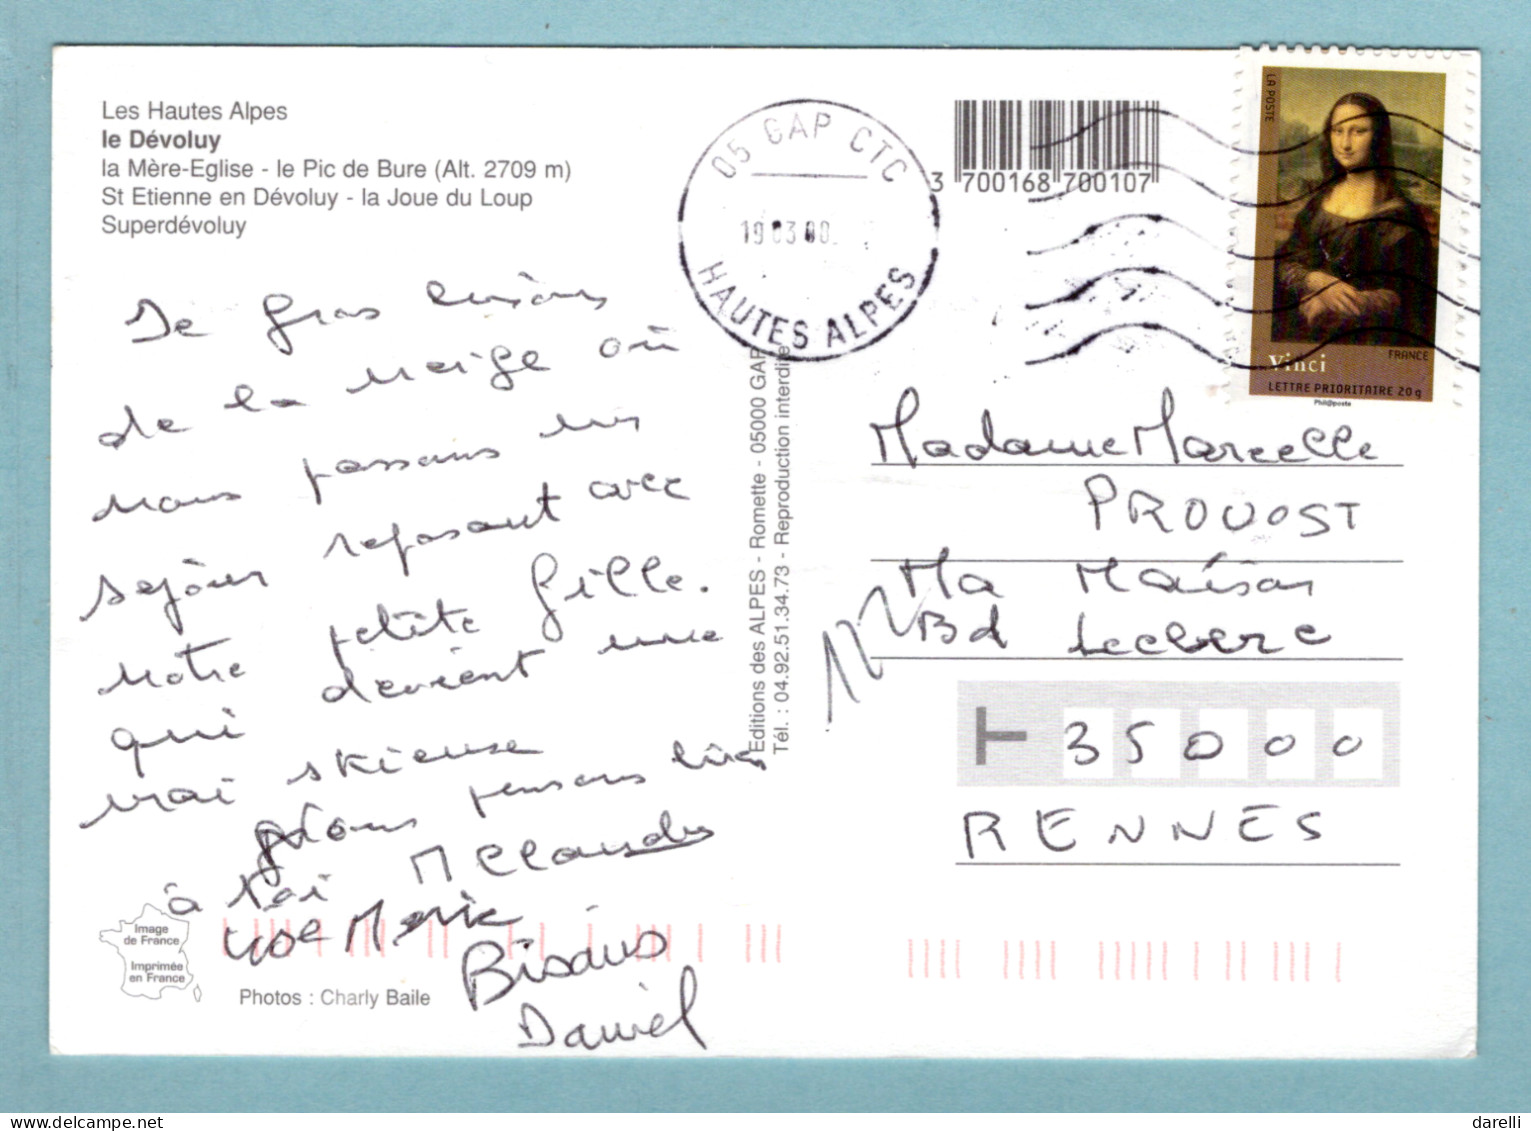 Les Hautes Alpes
le Dévoluy
la Mère-Eglise - le Pic de Bure (Alt. 2709 m)
St Etienne en Dévoluy - la Joue du Loup
Superdévoluy
De gros bisous
de la neige où
nous passons un
séjour reposant avec
notre petite fille.
qui devient une
vrai skieuse
Nous pensons bien
à toi M Claude
Rose Marie
Bisous
Daniel
Image
de France
Imprimée
en France
Photos : Charly Baile
Editions des ALPES - Romette - 05000 GAP
Tél. : 04.92.51.34.73 - Reproduction interdite
05 GAP CTC
19 03 08
HAUTES ALPES
3 700168 700107
LA POSTE
Vinci
FRANCE
LETTRE PRIORITAIRE 20g
Phil@poste
Madame Marcelle
PROVOST
Ma Maison
Bd Leclerc
35000
RENNES
darelli